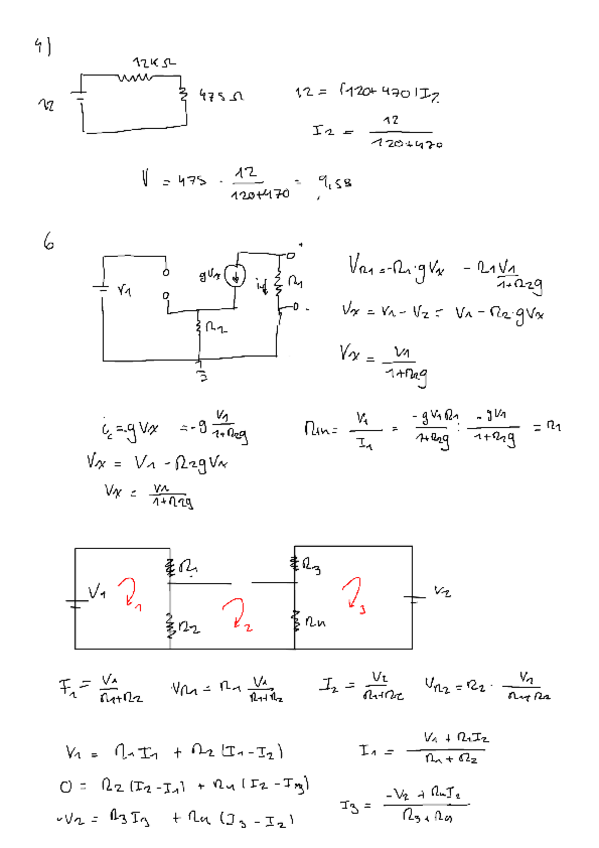 4)
12KΩ
12
475Ω
12 = (120+470)I2
I2 = 12/(120+470)
V = 475 · 12/(120+470) = 9,58
6
V1
gVx
R1
R2
VR1 = -R1·gVx - R1V1/(1+R2g)
Vx = V1 - V2 = V1 - R2·gVx
Vx = V1/(1+R2g)
ic = -gVx = -g V1/(1+R2g)
Vx = V1 - R2gVx
Vx = V1/(1+R2g)
Rin = V1/I1 = -gV1R1/(1+R2g) : -gV1/(1+R2g) = R1
V1
R1
R2
1
2
R3
R4
3
V2
I1 = V1/(R1+R2)
VR1 = R1 V1/(R1+R2)
I2 = V2/(R1+R2)
VR2 = R2 ·
V1 = R1I1 + R2(I1-I2)
I1 = (V1 + R2I2)/(R1+R2)
0 = R2(I2-I1) + R4(I2-I3)
-V2 = R3I3 + R4(I3-I2)
I3 = (-V2 + R4I2)/(R3+R4)